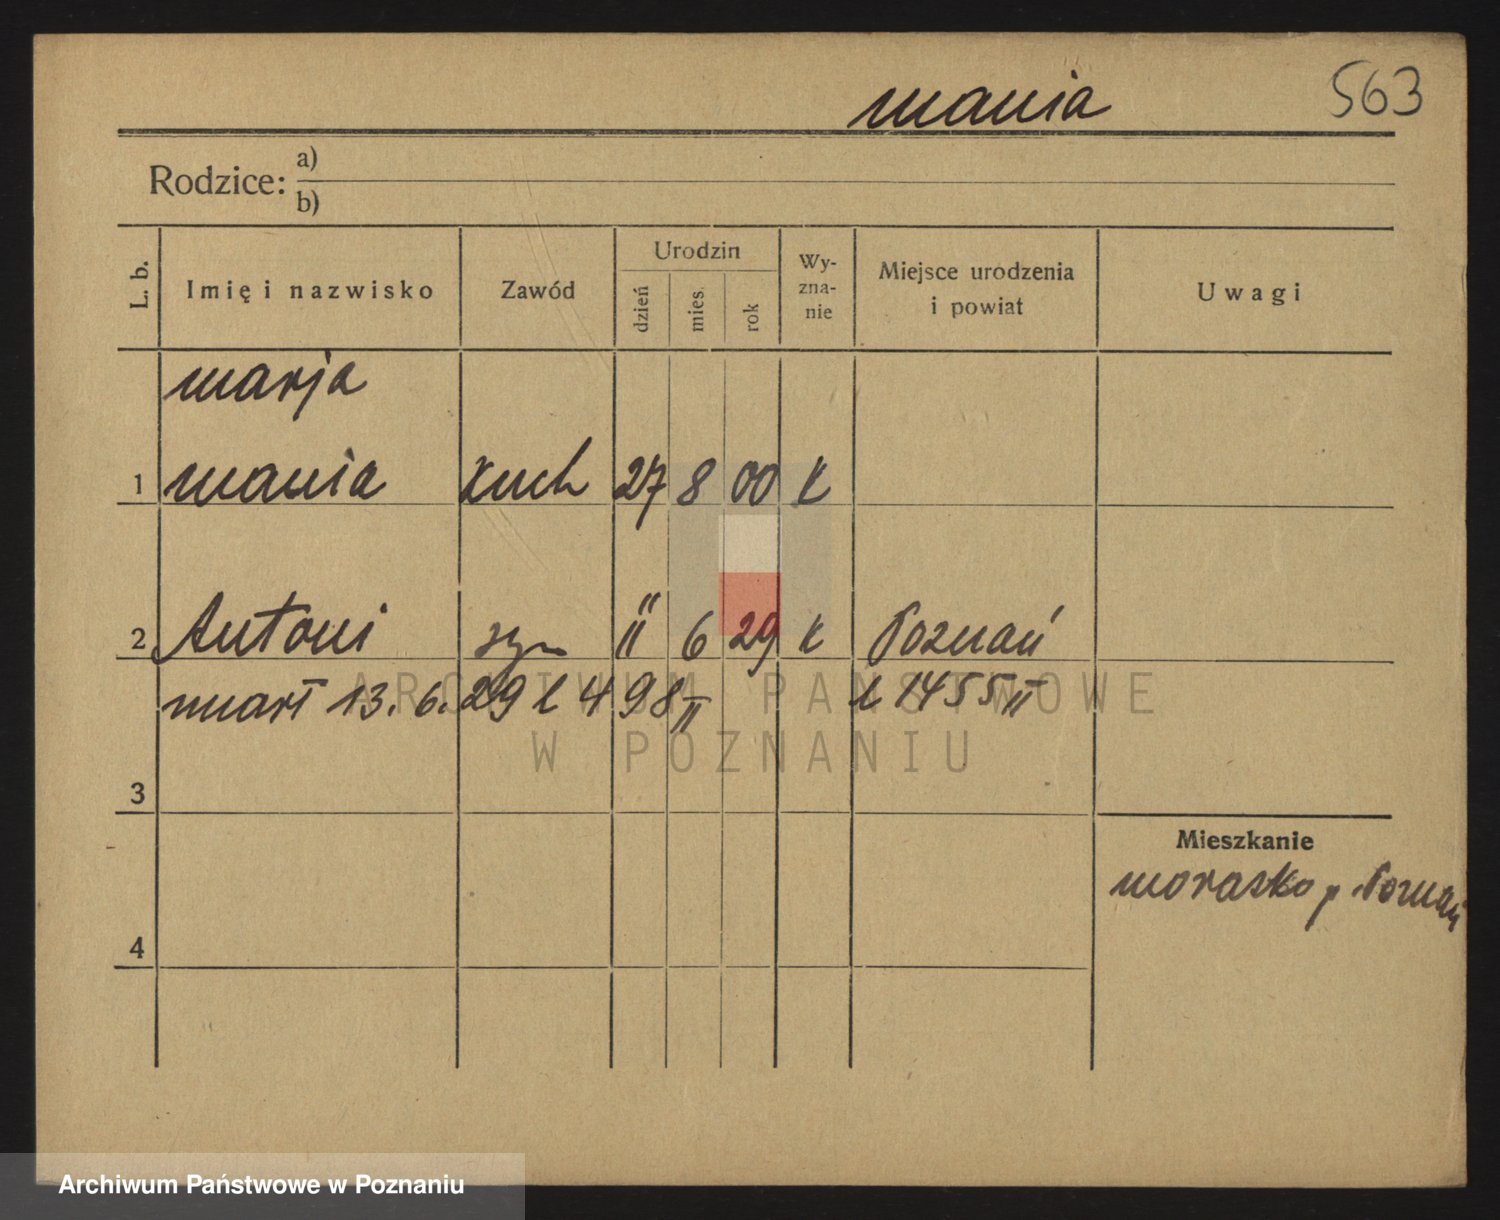 Mania 563
Rodzice: a)
b)
L. b. Imię i nazwisko Zawód Urodzin dzień mies. rok Wy-zna-nie Miejsce urodzenia i powiat Uwagi
Marja
1 Mania kuch 27 8 00 k
2 Antoni syn 11 6 29 k Poznań
zmarł 13. 6. 29 l 498 II l 1455 II
ARCHIWUM PAŃSTWOWE
W POZNANIU
3
Mieszkanie
Morasko p. Poznań
4
Archiwum Państwowe w Poznaniu